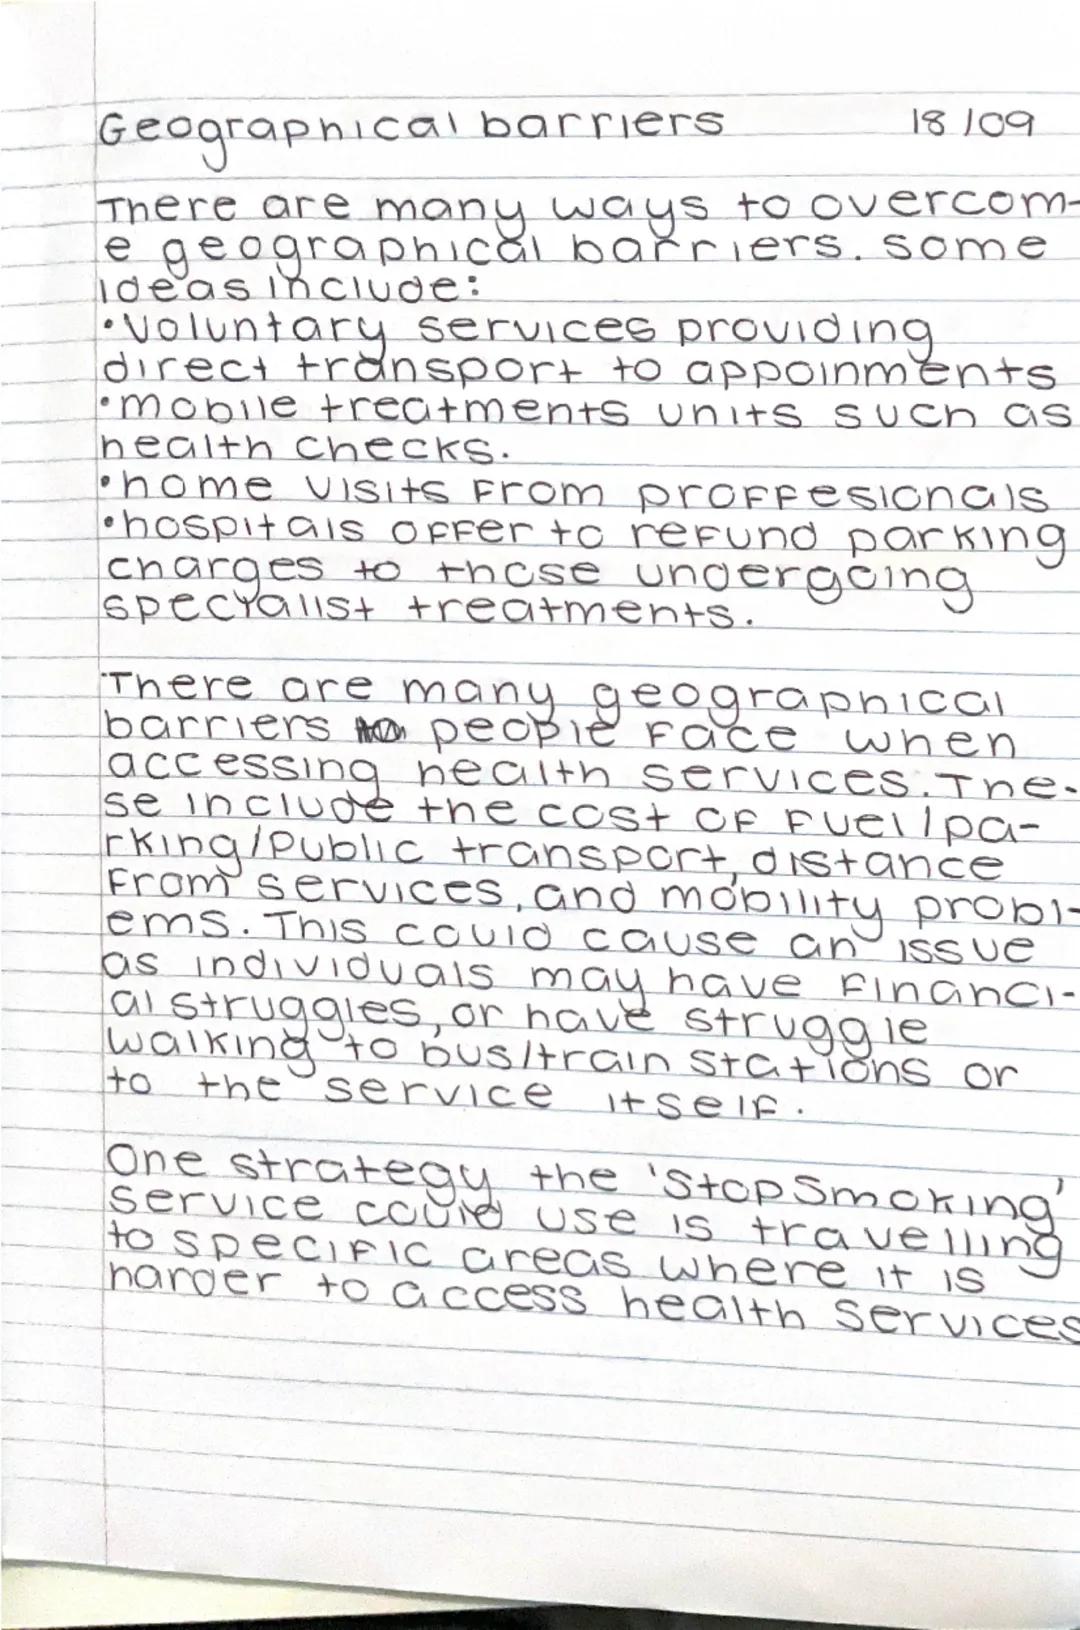 Geographical barriers 18/09
There are many ways to overcom-
e geographical barriers. some
ideas include:
•Voluntary services providing
direct transport to appoinments
•mobile treatments units such as
health checks.
•home visits from proffesionals
•hospitals offer to refund parking
charges to those undergoing
specialist treatments.
There are many geographical
barriers people face when
accessing health services. The-
se include the cost of fuel/pa-
rking/public transport, distance
from services, and mobility probl-
ems. This could cause an issue
as individuals may have financi-
al struggles, or have struggle
walking to bus/train stations or
to the service itself.
One strategy the 'Stop Smoking'
service could use is travelling
to specific areas where it is
harder to access health services